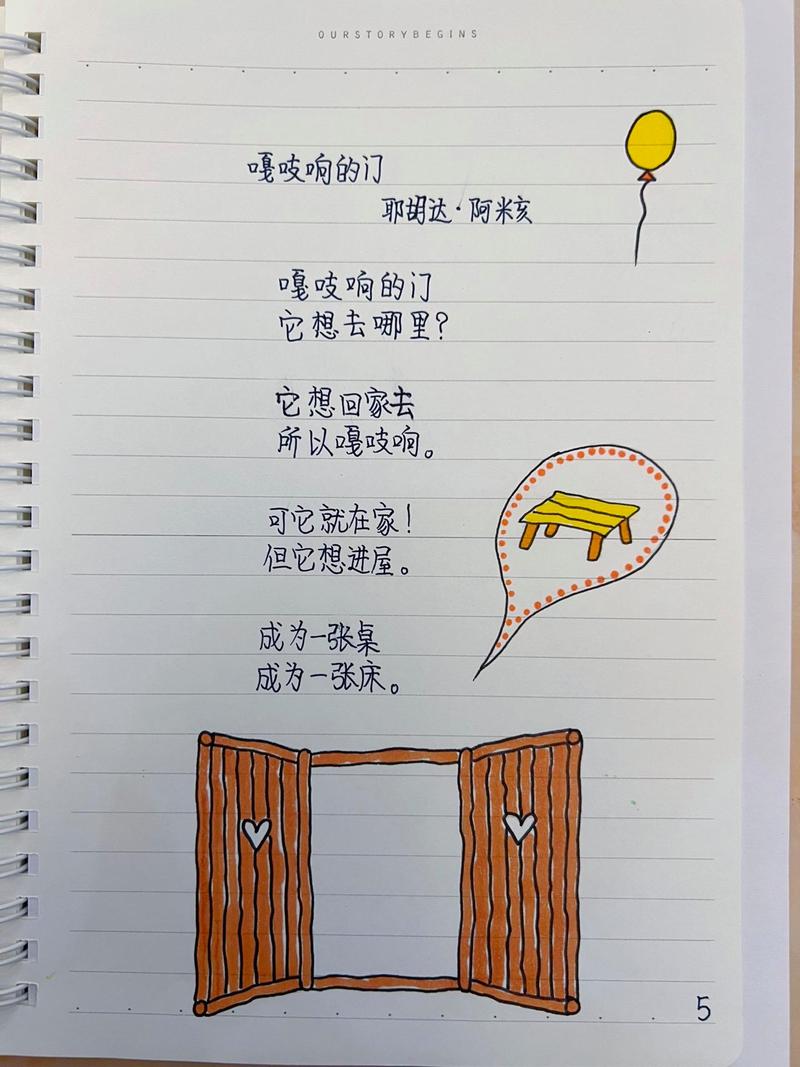 OURSTORYBEGINS
嘎吱响的门
耶胡达·阿米亥
嘎吱响的门
它想去哪里？
它想回家去
所以嘎吱响。
可它就在家！
但它想进屋。
成为一张桌
成为一张床。
5